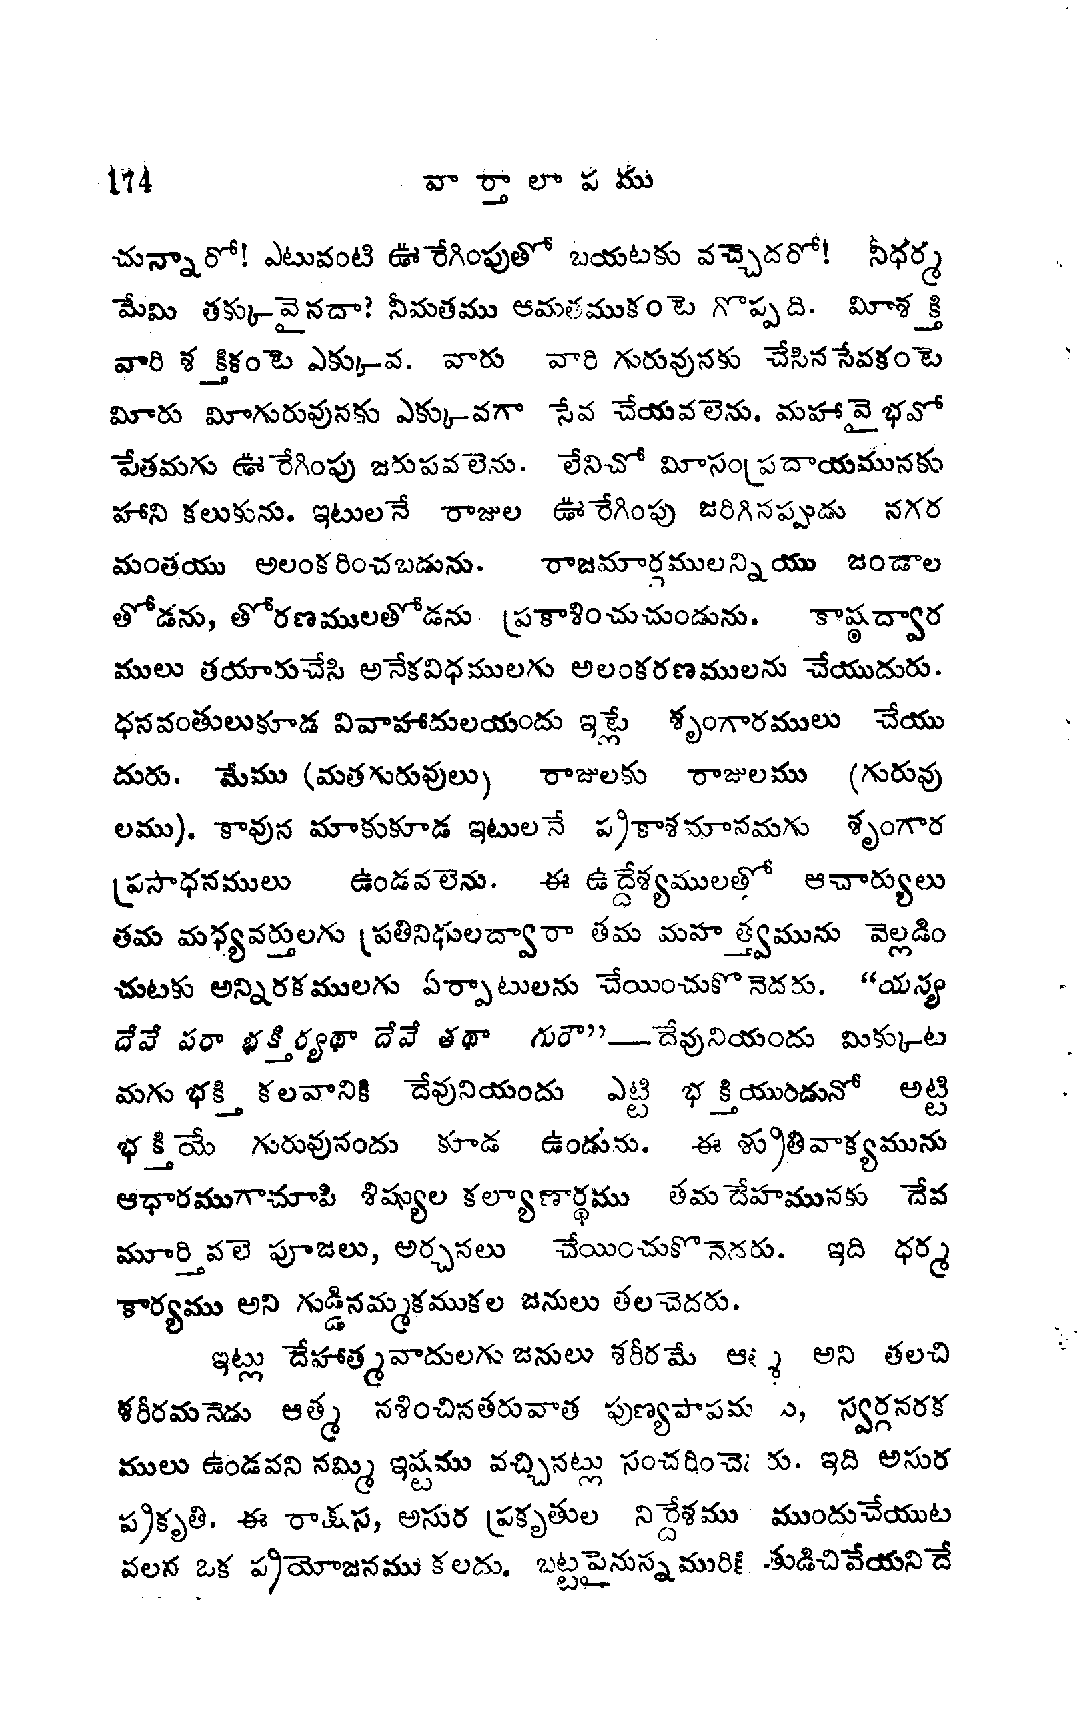 174 వార్తాలాపము
చున్నారో! ఎటువంటి ఊరేగింపుతో బయటకు వచ్చెదరో! నీధర్మ
మేమి తక్కువైనదా? నీమతము ఆమతముకంటె గొప్పది. మీశక్తి
వారి శక్తికంటె ఎక్కువ. వారు వారి గురువునకు చేసిన సేవకంటె
మీరు మీగురువునకు ఎక్కువగా సేవ చేయవలెను. మహావైభవో
పేతమగు ఊరేగింపు జరుపవలెను. లేనిచో మీసంప్రదాయమునకు
హాని కలుకును. ఇటులనే రాజుల ఊరేగింపు జరిగినప్పుడు నగర
మంతయు అలంకరించబడును. రాజమార్గములన్నియు జండాల
తోడను, తోరణములతోడను ప్రకాశించుచుండును. కాష్ఠద్వార
ములు తయారుచేసి అనేకవిధములగు అలంకరణములను చేయుదురు.
ధనవంతులుకూడ వివాహాదులయందు ఇట్లే శృంగారములు చేయు
దురు. మేము (మతగురువులు) రాజులకు రాజులము (గురువు
లము). కావున మాకుకూడ ఇటులనే ప్రకాశమానమగు శృంగార
ప్రసాధనములు ఉండవలెను. ఈ ఉద్దేశ్యములతో ఆచార్యులు
తమ మధ్యవర్తులగు ప్రతినిధులద్వారా తమ మహత్త్వమును వెల్లడిం
చుటకు అన్నిరకములగు ఏర్పాటులను చేయించుకొనెదరు. “యస్య
దేవే పరా భక్తిర్యథా దేవే తథా గురౌ”—దేవునియందు మిక్కుట
మగు భక్తి కలవానికి దేవునియందు ఎట్టి భక్తియుండునో అట్టి
భక్తియే గురువునందు కూడ ఉండును. ఈ శ్రుతివాక్యమును
ఆధారముగాచూపి శిష్యుల కల్యాణార్థము తమ దేహమునకు దేవ
మూర్తివలె పూజలు, అర్చనలు చేయించుకొనెనరు. ఇది ధర్మ
కార్యము అని గుడ్డినమ్మకముకల జనులు తలచెదరు.
ఇట్లు దేహాత్మవాదులగు జనులు శరీరమే అని తలచి
శరీరమనెడు ఆత్మ నశించినతరువాత స్వర్గనరక
ములు ఉండవని నమ్మి ఇష్టము వచ్చినట్లు ఇది అసుర
ప్రకృతి. ఈ రాక్షస, అసుర ప్రకృతుల నిర్దేశము ముందుచేయుట
వలన ఒక ప్రయోజనము కలదు. బట్టపైనున్న మురికి తుడిచివేయనిదే